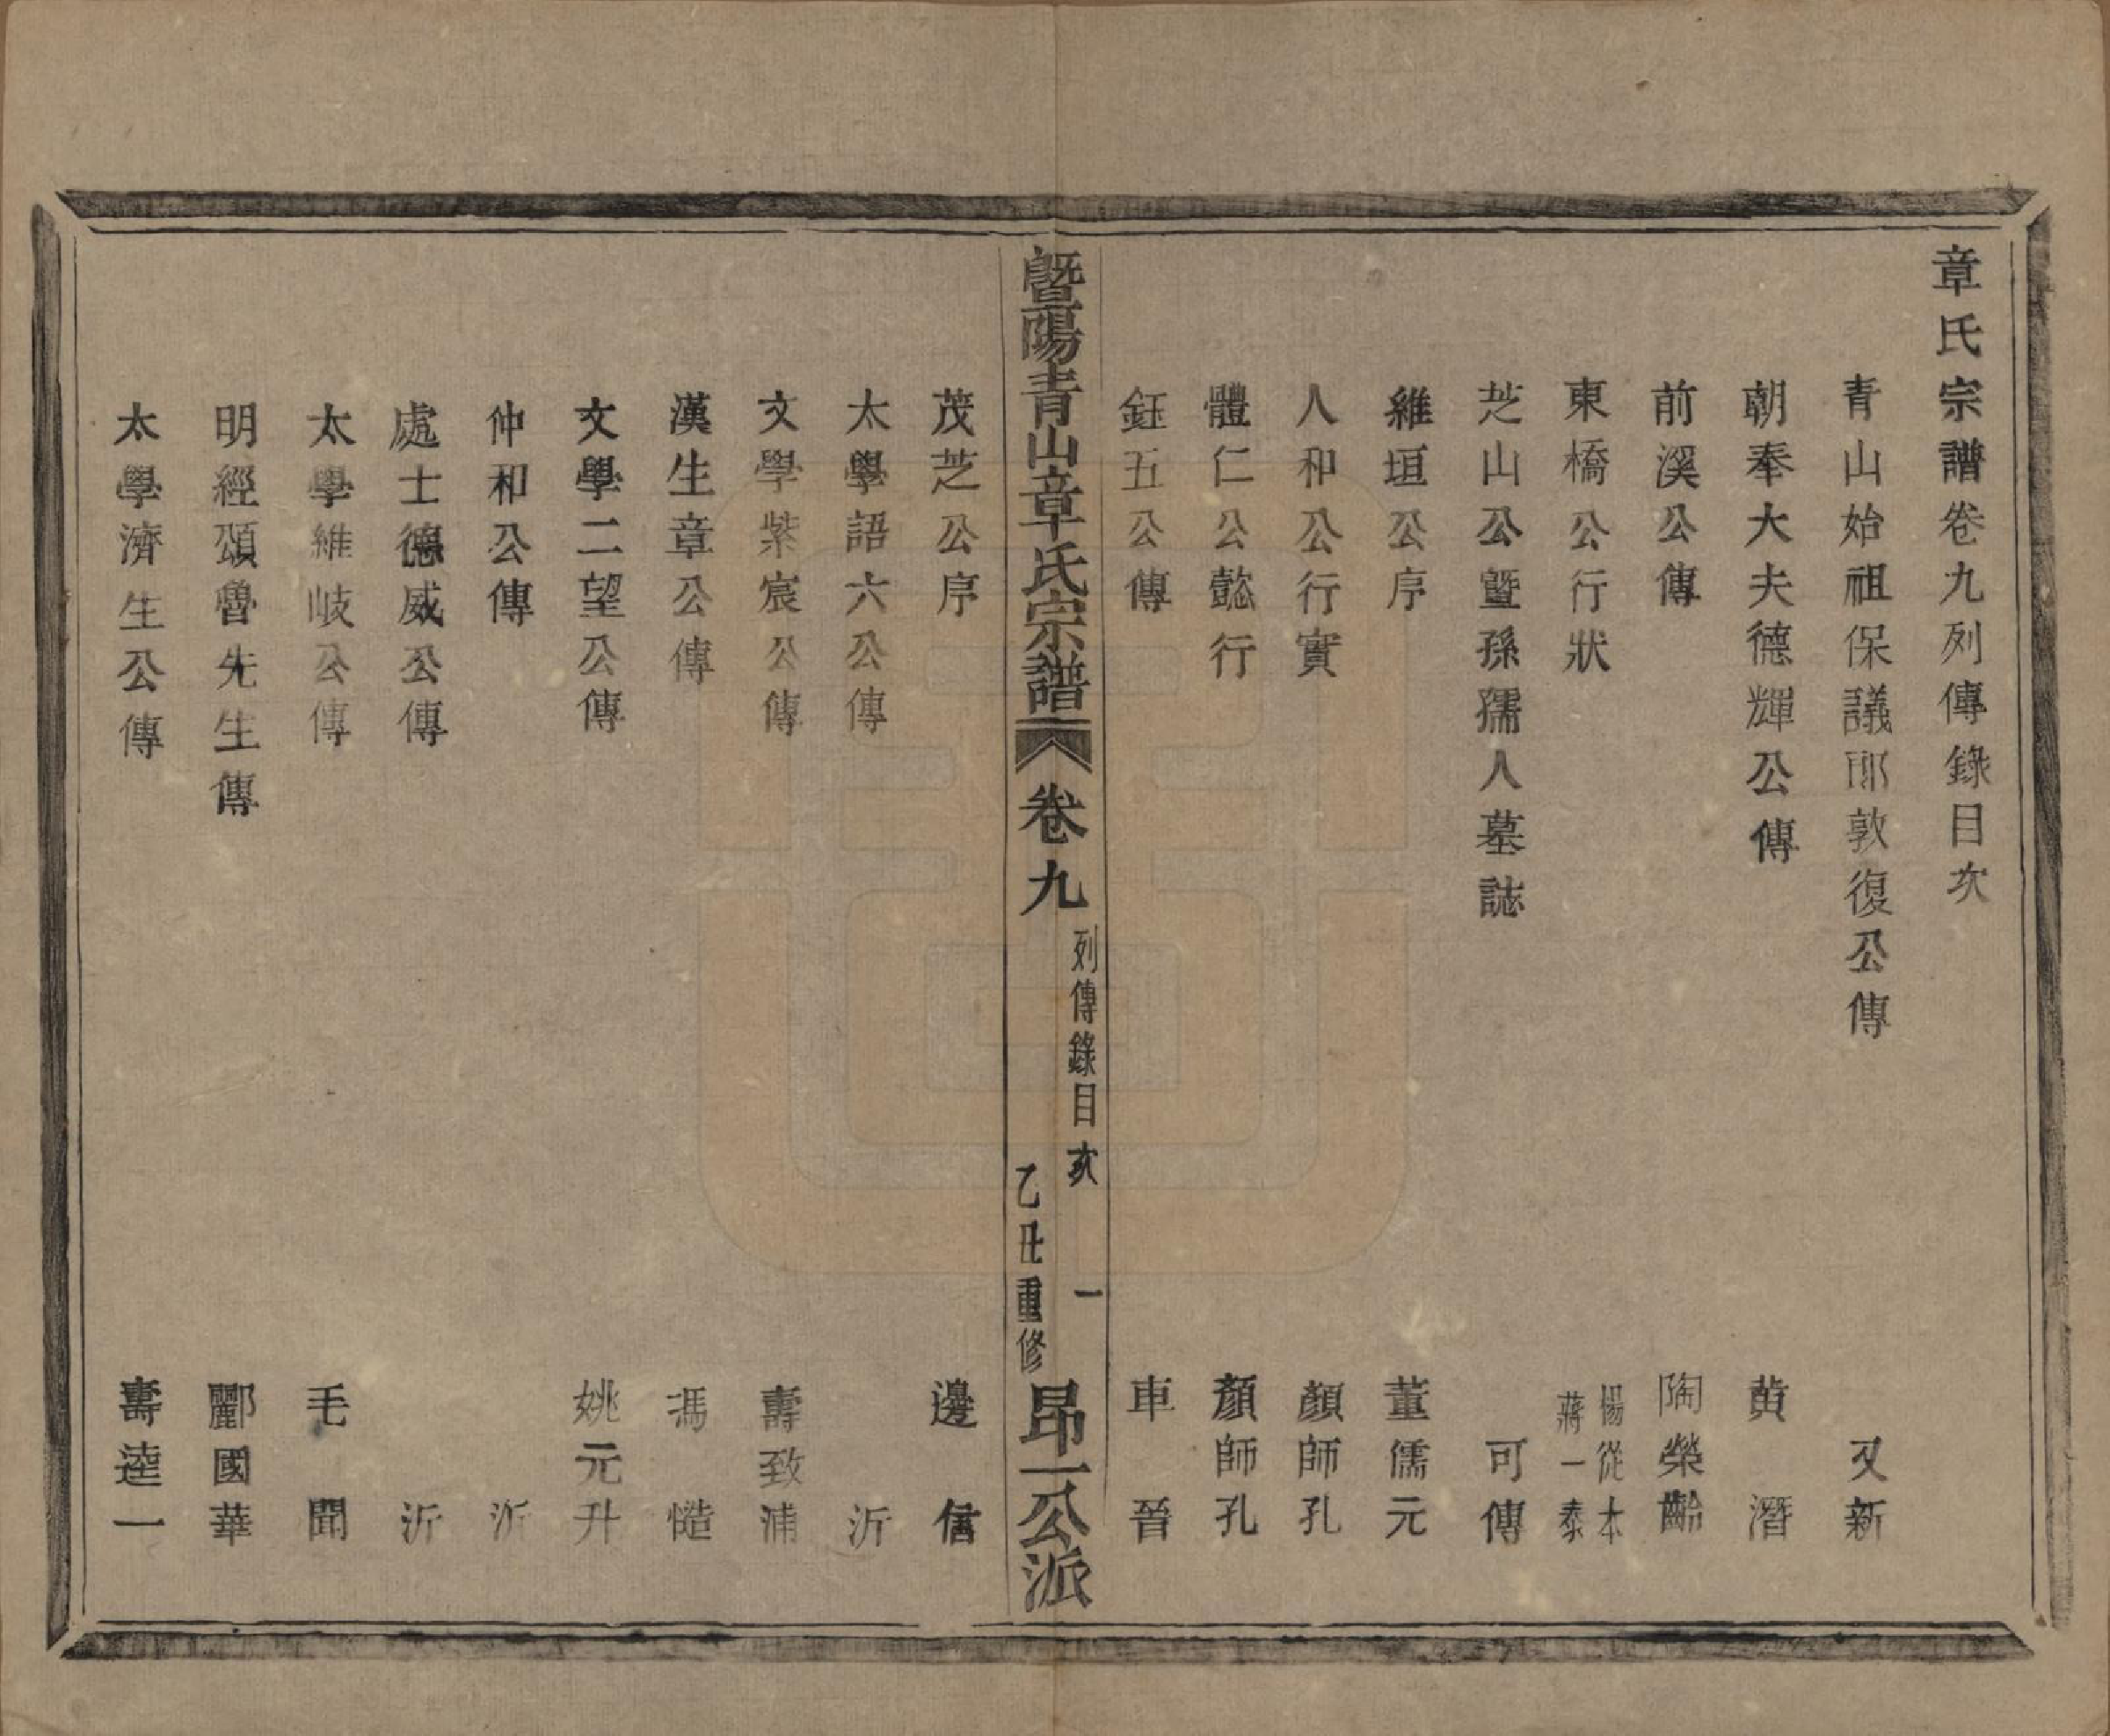 章氏宗譜卷九列傳錄目次
青山始祖保議郎敦復公傳　又新
朝奉大夫德輝公傳　黄潛
前溪公傳　陶榮齡
東橋公行狀　楊從本　蔣一泰
芝山公曁孫孺人墓誌　可傳
維垣公序　董儒元
人和公行實　顏師孔
體仁公懿行　顏師孔
鈺五公傳　車晉
曁陽青山章氏宗譜　卷九　列傳錄目次　一　乙丑重修　昂一公派
茂芝公序　邊信
太學語六公傳　沂
文學紫宸公傳　壽致浦
漢生章公傳　馮慥
文學二望公傳　姚元升
仲和公傳　沂
處士德威公傳　沂
太學維岐公傳　毛聞
明經頌魯先生傳　酈國華
太學濟生公傳　壽逵一